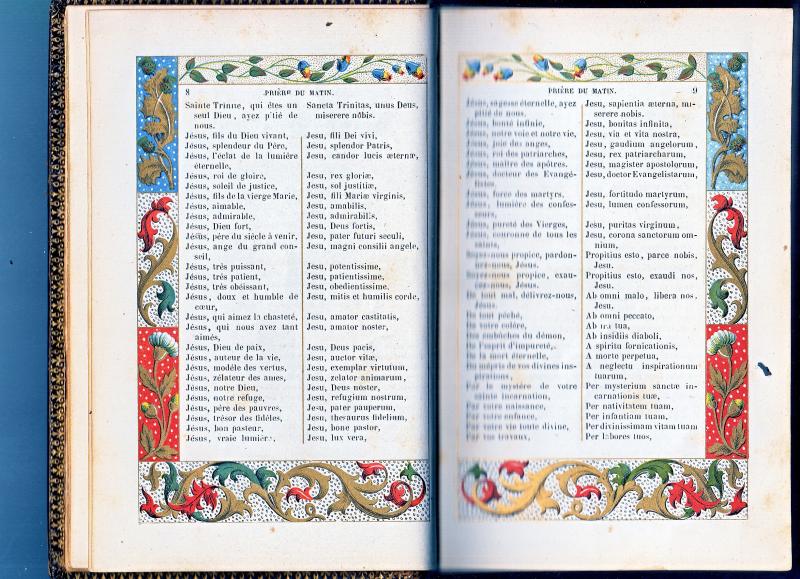 8 PRIÈRE DU MATIN.
Sainte Trinne, qui êtes un
seul Dieu, ayez p'tié de
nous.
Jésus, fils du Dieu vivant,
Jésus, splendeur du Père,
Jésus, l'éclat de la lumière
éternelle,
Jésus, roi de gloire,
Jésus, soleil de justice,
Jésus, fils de la vierge Marie,
Jésus, aimable,
Jésus, admirable,
Jésus, Dieu fort,
Jésus, père du siècle à venir,
Jésus, ange du grand con-
seil,
Jésus, très puissant,
Jésus, très patient,
Jésus, très obéissant,
Jésus, doux et humble de
cœur,
Jésus, qui aimez la chasteté,
Jésus, qui nous avez tant
aimés,
Jésus, Dieu de paix,
Jésus, auteur de la vie,
Jésus, modèle des vertus,
Jésus, zélateur des ames,
Jésus, notre Dieu,
Jésus, notre refuge,
Jésus, père des pauvres,
Jésus, trésor des fidèles,
Jésus, bon pasteur,
Jésus, vraie lumière,
Sancta Trinitas, unus Deus,
miserere nobis.
Jesu, fili Dei vivi,
Jesu, splendor Patris,
Jesu, candor lucis æternæ,
Jesu, rex gloriæ,
Jesu, sol justitiæ,
Jesu, fili Mariæ virginis,
Jesu, amabilis,
Jesu, admirabilis,
Jesu, Deus fortis,
Jesu, pater futuri seculi,
Jesu, magni consilii angele,
Jesu, potentissime,
Jesu, patientissime,
Jesu, obedientissime,
Jesu, mitis et humilis corde,
Jesu, amator castitatis,
Jesu, amator noster,
Jesu, Deus pacis,
Jesu, auctor vitæ,
Jesu, exemplar virtutum,
Jesu, zelator animarum,
Jesu, Deus noster,
Jesu, refugium nostrum,
Jesu, pater pauperum,
Jesu, thesaurus fidelium,
Jesu, bone pastor,
Jesu, lux vera,
PRIÈRE DU MATIN. 9
Jésus, sagesse éternelle, ayez
pitié de nous,
Jésus, bonté infinie,
Jésus, notre voie et notre vie,
Jésus, joie des anges,
Jésus, roi des patriarches,
Jésus, maître des apôtres,
Jésus, docteur des Évangé-
listes,
Jésus, force des martyrs,
Jésus, lumière des confes-
seurs,
Jésus, pureté des Vierges,
Jésus, couronne de tous les
saints,
Soyez-nous propice, pardon-
nez-nous, Jésus.
Soyez-nous propice, exau-
cez-nous, Jésus.
De tout mal, délivrez-nous,
Jésus.
De tout péché,
De votre colère,
Des embûches du démon,
De l'esprit d'impureté,
De la mort éternelle,
Du mépris de vos divines ins-
pirations,
Par le mystère de votre
sainte incarnation,
Par votre naissance,
Par votre enfance,
Par votre vie toute divine,
Par vos travaux,
Jesu, sapientia æterna, mi-
serere nobis.
Jesu, bonitas infinita,
Jesu, via et vita nostra,
Jesu, gaudium angelorum,
Jesu, rex patriarcharum,
Jesu, magister apostolorum,
Jesu, doctor Evangelistarum,
Jesu, fortitudo martyrum,
Jesu, lumen confessorum,
Jesu, puritas virginum,
Jesu, corona sanctorum om-
nium,
Propitius esto, parce nobis,
Jesu.
Propitius esto, exaudi nos,
Jesu.
Ab omni malo, libera nos,
Jesu.
Ab omni peccato,
Ab ira tua,
Ab insidiis diaboli,
A spiritu fornicationis,
A morte perpetua,
A neglectu inspirationum
tuarum,
Per mysterium sanctæ in-
carnationis tuæ,
Per nativitatem tuam,
Per infantiam tuam,
Per divinissimam vitam tuam
Per labores tuos,